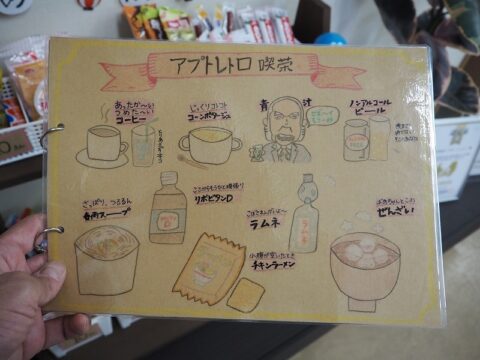 アプトレトロ 喫茶
あったか〜い
つめた〜い
コーヒー
じっくりコトコト
コーンポタージュ
青汁
ノンアルコール
ビール
さっぱり、つるるん
春雨スープ
ここからもうひと頑張り
リポビタンD
ラムネ
ラムネ
小腹が空いたとき
チキンラーメン
ぜんざい